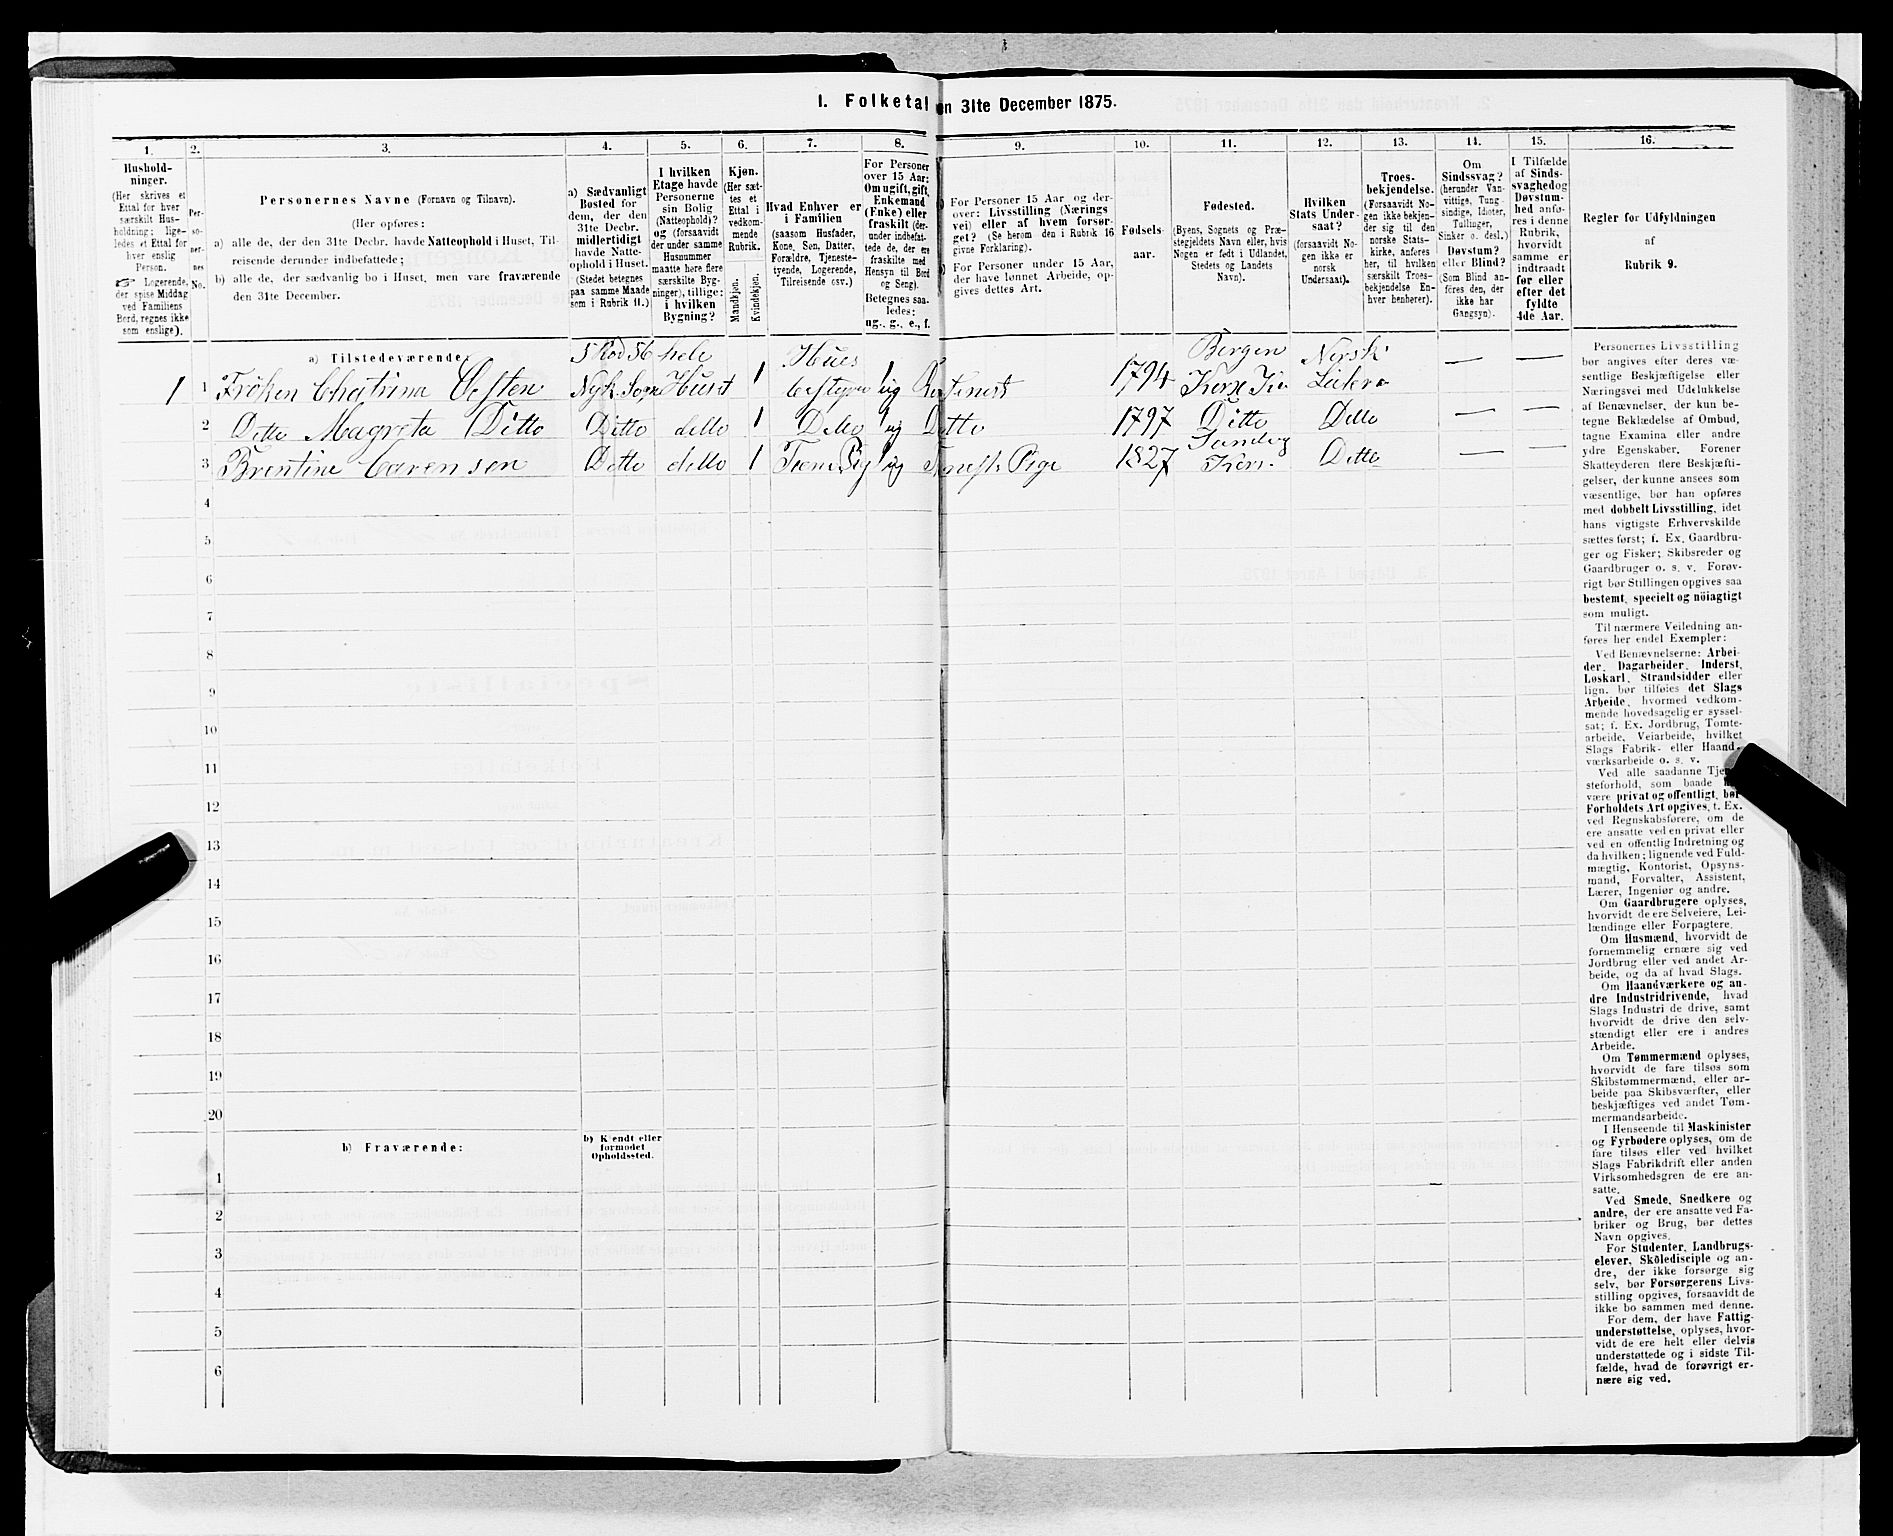 I. Folketal
en 31te December 1875.
1.
2.
3.
4.
5.
6.
7.
8.
9.
10.
11.
12.
13.
14.
15.
16.
Hushold-
ninger.
(Her skrives et
Ettal for hver
særskilt Hus-
holdning; lige-
ledes et Ettal for
hver enslig
Person.
☞ Logerende,
der spise Middag
ved Familiens
Bord, regnes ikke
som enslige).
Per-
so-
ner-
nes
No.
Personernes Navne (Fornavn og Tilnavn).
(Her opføres:
a) alle de, der den 31te Decbr. havde Natteophold i Huset, Til-
reisende derunder indbefattede;
b) alle de, der sædvanlig bo i Huset, men vare fraværende
den 31te December.
a) Sædvanligt
Bosted for
dem, der den
31te Decbr.
midlertidigt
havde Natte-
ophold i Huset.
(Stedet betegnes
paa samme Maade
som i Rubrik 11.)
I hvilken
Etage havde
Personerne
sin Bolig
(Natteophold)?
og (forsaavidt
der under samme
Husnummer
maatte høre flere
særskilte Byg-
ninger), tillige:
i hvilken
Bygning?
Kjøn.
(Her sæt-
tes et
Ettal i
vedkom-
mende
Rubrik.
Mandkjøn.
Kvindekjøn.
Hvad Enhver er
i Familien
(saasom Husfader,
Kone, Søn, Datter,
Forældre, Tjeneste-
tyende, Logerende,
Tilreisende osv.)
For Personer
over 15 Aar:
Om ugift, gift,
Enkemand
(Enke) eller
fraskilt (der-
under indbefat-
tede de, der ere
fraskilte med
Hensyn til Bord
og Seng).
Betegnes saa-
ledes:
ug., g., e., f.
For Personer 15 Aar og der-
over: Livsstilling (Nærings
vei) eller af hvem forsør-
get? (Se herom den i Rubrik 16
givne Forklaring).
For Personer under 15 Aar,
der have lønnet Arbeide, op-
gives dettes Art.
Fødsels-
aar.
Fødested.
(Byens, Sognets og Præ-
stegjeldets Navn eller, hvis
Nogen er født i Udlandet,
Stedets og Landets
Navn).
Hvilken
Stats Under-
saat?
(forsaavidt No-
gen ikke er
norsk
Undersaat).
Troes-
bekjendelse.
(Forsaavidt No-
gen ikke bekjen-
der sig til den
norske Stats-
kirke, anføres
her, til hvilken
særskilt Troes-
bekjendelse En-
hver henhører).
Om
Sindssvag?
(herunder Van-
vittige, Tung-
sindige, Idioter,
Tullinger,
Sinker o. desl.)
Døvstum?
eller Blind?
(Som Blind an-
føres den, der
ikke har
Gangsyn).
I Tilfælde
af Sinds-
svaghed og
Døvstum-
hed anfø-
res i denne
Rubrik,
hvorvidt
samme er
indtraadt
før eller
efter det
fyldte
4de Aar.
Regler for Udfyldningen
af
Rubrik 9.
a) Tilstedeværende
5 Rod 56 hele Hues Bergen Norsk
1 1 Frøken Chatrina Nyk. Huset 1 ug 1794 —— ——
2 Ditto Magreta Ditto Ditto detto 1 Ditto 1 ug Ditto 1797 Ditto Ditto —— ——
3 Brentine Detto detto 1 1 ug Pige 1827 Ditto —— ——
4
5
6
7
8
9
10
11
12
13
14
15
16
17
18
19
20
b) Fraværende:
b) Kjendt eller
formodet
Opholdssted.
1
2
3
4
5
6
Personernes Livsstilling
bør angives efter deres væ-
sentlige Beskjæftigelse eller
Næringsvei med Udelukkelse
af Benævnelser, der kun be-
tegne Beklædelse af Ombud,
tagne Examina eller andre
ydre Egenskaber. Forener
Skatteyderen flere Beskjæfti-
gelser, der kunne ansees som
væsentlige, bør han opføres
med dobbelt Livsstilling, idet
hans vigtigste Erhvervskilde
sættes først; f. Ex. Gaardbru-
ger og Fisker; Skibsreder og
Gaardbruger o. s. v. Forøv-
rigt bør Stillingen opgives saa
bestemt, specielt og nöiagtigt
som muligt.
Til nærmere Veiledning an-
føres her endel Exempler:
Ved Benævnelserne: Arbei-
der, Dagarbeider, Inderst,
Løskarl, Strandsidder eller
lign. bør tilføies det Slags
Arbeide, hvormed vedkom-
mende hovedsagelig er syssel-
sat; f. Ex. Jordbrug, Tomte-
arbeide, Veiarbeide, hvilket
Slags Fabrik- eller Haand-
værksarbeide o. s. v.
Ved alle saadanne Tje
steforhold, som baade
være privat og offentligt, bør
Forholdets Art opgives, t. Ex.
ved Regnskabsførere, om de
ere ansatte ved en privat eller
ved en offentlig Indretning og
da hvilken; lignende ved Fuld-
mægtig, Kontorist, Opsyns-
mand, Forvalter, Assistent,
Lærer, Ingeniør og andre.
Om Gaardbrugere oplyses,
hvorvidt de ere Selveiere, Lei-
lændinge eller Forpagtere.
Om Husmænd, hvorvidt de
fornemmelig ernære sig ved
Jordbrug eller ved andet Ar-
beide, og da af hvad Slags.
Om Haandværkere og an-
dre Industridrivende, hvad
Slags Industri de drive, samt
hvorvidt de drive den selv-
stændigt eller ere i andres
Arbeide.
Om Tømmermænd oplyses,
hvorvidt de fare tilsøs som
Skibstømmermænd, eller ar-
beide paa Skibsværfter, eller
beskjæftiges ved andet Tøm-
mermandsarbeide.
I Henseende til Maskinister
og Fyrbødere oplyses, om de
fare tilsøs eller ved hvilket
Slags Fabrikdrift eller anden
Virksomhedsgren de ere an-
satte.
Ved Smede, Snedkere og
andre, der ere ansatte ved Fa-
briker og Brug, bør dettes
Navn opgives.
For Studenter, Landbrugs-
elever, Skoledisciple og an-
dre, der ikke forsørge sig
selv, bør Forsørgerens Livs-
stilling opgives, forsaavidt de
ikke bo sammen med denne.
For dem, der have Fattig-
understøttelse, oplyses, hvor-
vidt de ere helt eller delvis
understøttede og i sidste Til-
fælde, hvad de forøvrigt er-
nære sig ved.